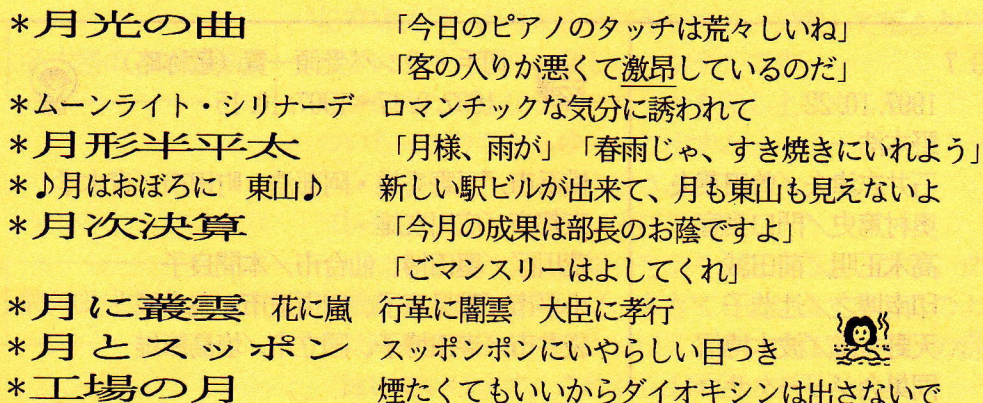 *月光の曲 「今日のピアノのタッチは荒々しいね」
「客の入りが悪くて激昂しているのだ」
*ムーンライト・シリナーデ ロマンチックな気分に誘われて
*月形半平太 「月様、雨が」「春雨じゃ、すき焼きにいれよう」
*♪月はおぼろに 東山♪ 新しい駅ビルが出来て、月も東山も見えないよ
*月次決算 「今月の成果は部長のお蔭ですよ」
「ごマンスリーはよしてくれ」
*月に叢雲 花に嵐 行革に闇雲 大臣に孝行
*月とスッポン スッポンポンにいやらしい目つき
*工場の月 煙たくてもいいからダイオキシンは出さないで